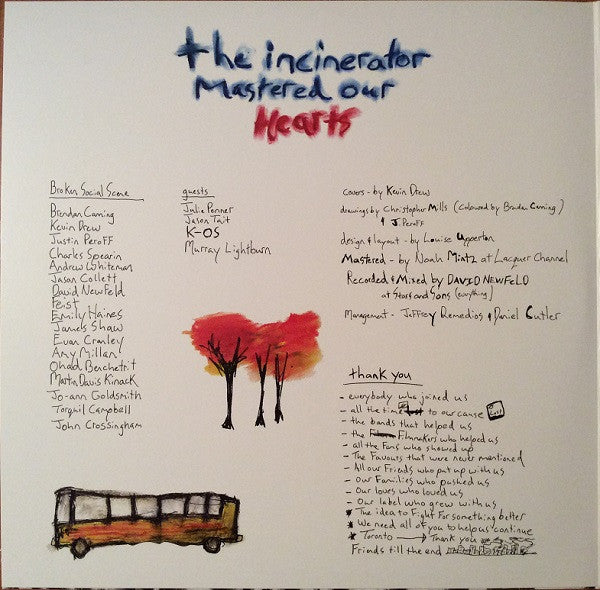 the incinerator
Mastered our
Hearts
Broken Social Scene
Brendan Canning
Kevin Drew
Justin Peroff
Charles Spearin
Andrew Whiteman
Jason Collett
David Newfeld
Feist
Emily Haines
James Shaw
Evan Cranley
Amy Millan
Ohad Benchetrit
Martin Davis Kinack
Jo-ann Goldsmith
Torquil Campbell
John Crossingham
guests
Julie Penner
Jason Tait
K-OS
Murray Lightburn
covers - by Kevin Drew
drawings by Christopher Mills (Coloured by Brendan Canning)
& J. Peroff
design & layout - by Louise Upperton
Mastered - by Noah Mintz at Lacquer Channel
Recorded & Mixed by DAVID NEWFELD
at Stars and Sons (everything)
Management - Jeffrey Remedios & Daniel Cutler
thank you
- everybody who joined us
- all the time to our cause
- the bands that helped us
- the Filmmakers who helped us
- all the Fans who showed up
- The Favours that were never mentioned
- All our Friends who put up with us
- Our Families who pushed us
- Our loves who loved us
- Our label who grew with us
* The idea to Fight For something better
* We need all of you to help us continue
* Toronto → Thank you
Friends till the end